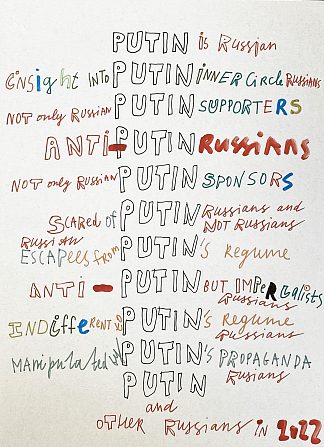 PUTIN is Russian
insight INTO PUTIN INNER CIRCLE RUSSIANS
NOT only RUSSIAN PUTIN SUPPORTERS
ANTI-PUTIN RUSSIANS
NOT only RUSSIAN PUTIN SPONSORS
SCARED of PUTIN RUSSIANS and NOT RUSSIANS
RUSSIAN ESCAPees from PUTIN's REGIME
ANTI - PUTIN BUT IMPERialists Russians
INDiffeRENT to PUTIN's REGIME Russians
MANipulated by PUTIN's PROPAGANDA Rusians
PUTIN
and
OTHER RUSSIANS in 2022